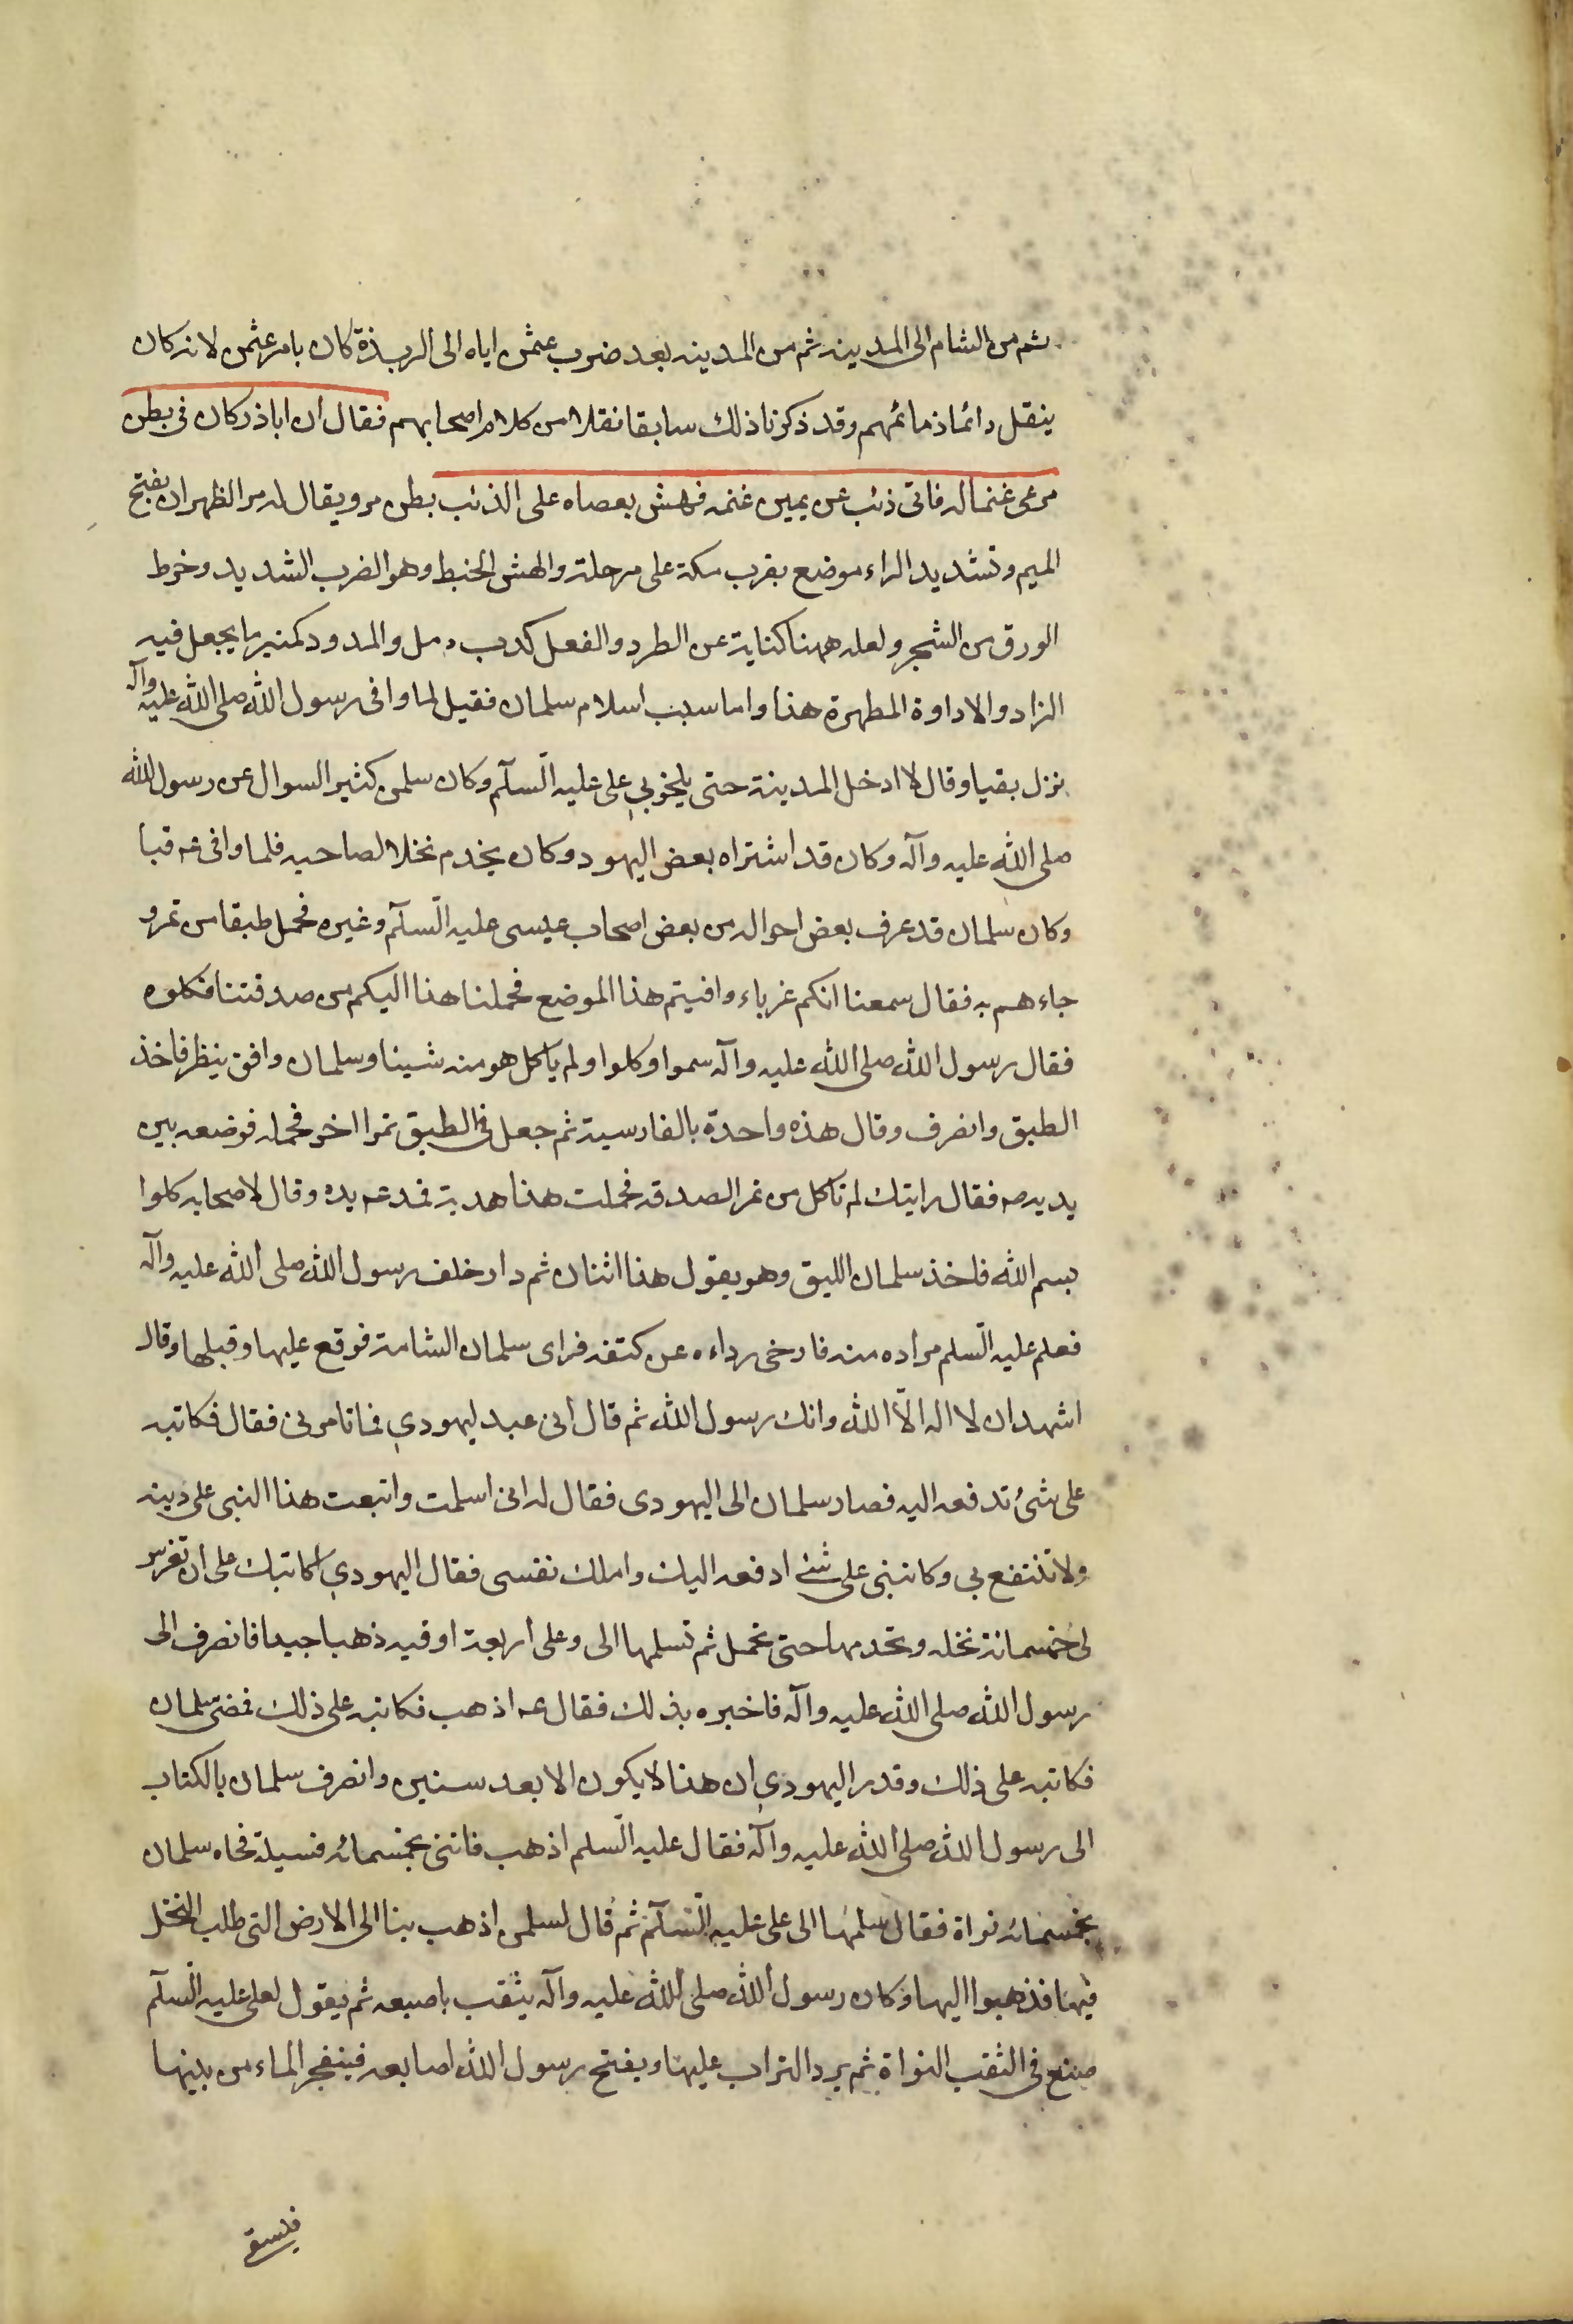 ثم من الشام الى المدينه ثم من المدينه بعد ضرب عثمن اياه الى الربذة كان بامر عثمن لانه كان
ينقل دائما ذمائمهم وقد ذكرنا ذلك سابقا نقلا من كلام اصحابهم فقال ان اباذر كان فى بطن
مر عى غنما له فاتى ذئب عن يمين غنمه فهش بعصاه على الذئب بطن مر ويقال له مر الظهران بفتح
الميم وتشديد الراء موضع بقرب مكة على مرحلة والهش الخبط وهو الضرب الشديد وخرط
الورق من الشجر ولعله ههنا كناية عن الطرد والفعل كدب و مل والمدود كمنبر ما يجعل فيه
الزاد والاداوة المطهرة هذا واما سبب اسلام سلمان فقيل لما وافى رسول الله صلى الله عليه وآله
نزل بقبا وقال لا ادخل المدينة حتى يلحق بى على عليه السلم وكان سلمن كثير السوال عن رسول الله
صلى الله عليه وآله وكان قد اشتراه بعض اليهود وكان يخدم نخلا لصاحبه فلما وافى ع قبا
وكان سلمان قد عرف بعض احواله من بعض اصحاب عيسى عليه السلم وغيره فحمل طبقا من تمر و
جاءهم به فقال سمعنا انكم غرباء وافيتم هذا الموضع فحملنا هذا اليكم من صدقتنا فكلوه
فقال رسول الله صلى الله عليه وآله سموا وكلوا ولم ياكل هو منه شيئا وسلمان واقف ينظر فاخذ
الطبق وانصرف وقال هذه واحدة بالفارسية ثم جعل فى الطبق تمرا اخر فحمله فوضعه بين
يديه ص فقال رايتك لم تاكل من تمر الصدقه فحملت هذا هدية فمد ع يده وقال لاصحابه كلوا
بسم الله فاخذ سلمان الليق وهو يقول هذا اثنان ثم دار خلف رسول الله صلى الله عليه وآله
فعلم عليه السلم مراده منه فارخى رداءه عن كتفه فراى سلمان الشامة فوقع عليها وقبلها وقال
اشهد ان لا اله الا الله وانك رسول الله ثم قال انى عبد ليهودي فما تامرنى فقال فكاتبه
على شئ تدفعه اليه فصار سلمان الى اليهودى فقال له انى اسلمت واتبعت هذا النبى على دينه
ولا تنتفع بى وكاتبنى على شئ ادفعه اليك واملك نفسى فقال اليهودي اكاتبك على ان تغرس
لى خمسمائة نخله وتخدمها حتى تحمل ثم تسلمها الى وعلى اربعة اوقيه ذهبا جيدا فانصرف الى
رسول الله صلى الله عليه وآله فاخبره بذلك فقال ع اذهب فكاتبه على ذلك فمضى سلمان
فكاتبه على ذلك وقدر اليهودي ان هذا لا يكون الا بعد سنين وانصرف سلمان بالكتاب
الى رسول الله صلى الله عليه وآله فقال عليه السلم اذهب فاتنى بخمسمائه فسيلة فجاه سلمان
بخمسمائه نواة فقال سلمها الى على عليه السلم ثم قال لسلمن اذهب بنا الى الارض التى طلب النخل
فيها فذهبوا اليها وكان رسول الله صلى الله عليه وآله يثقب باصبعه ثم يقول لعلى عليه السلم
صنع فى الثقب النواة ثم يرد التراب عليها ويفتح رسول الله اصابعه فينفجر الماء من بينها
فيسقى